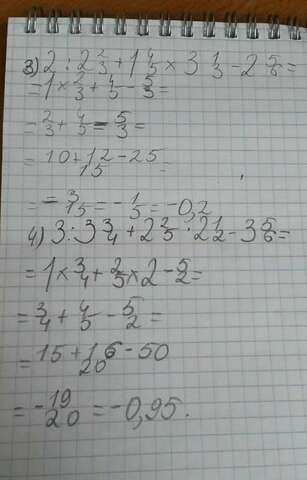 3) 2 : 2 2/3 + 1 4/5 × 3 1/3 - 2 5/6 =
= 1 × 2/3 + 4/5 - 5/3 =
= 2/3 + 4/5 = 5/3 =
= 10 + 12 - 25 / 15 =
= - 3/15 = - 1/5 = -0,2
4) 3 : 3 3/4 + 2 2/5 · 2 1/2 - 3 5/6 =
= 1 × 3/4 + 2/5 × 2 - 5/2 =
= 3/4 + 4/5 - 5/2 =
= 15 + 16 - 50 / 20
= - 19/20 = -0,95.